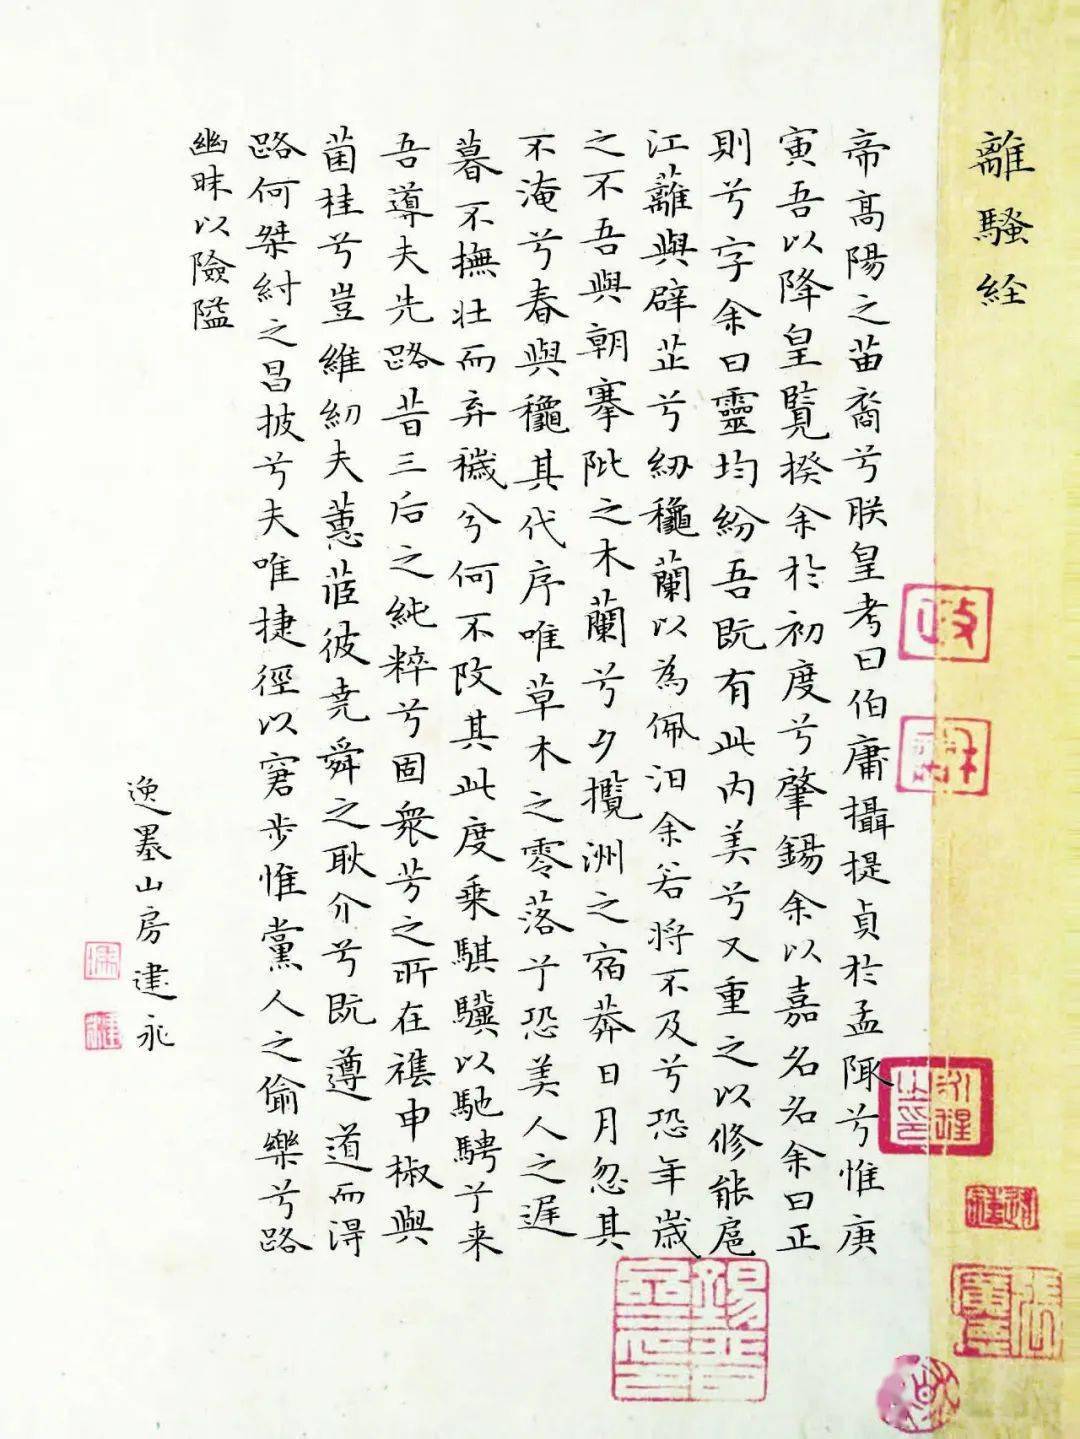 離騷経
帝髙陽之苗裔兮朕皇考曰伯庸攝提貞於孟陬兮惟庚
寅吾以降皇覽揆余於初度兮肇錫余以嘉名名余曰正
則兮字余曰靈均紛吾既有此内美兮又重之以修能扈
江蘺與辟芷兮紉龝蘭以為佩汨余若将不及兮恐年歳
之不吾與朝搴阰之木蘭兮夕攬洲之宿莽日月忽其
不淹兮春與龝其代序唯草木之零落兮恐美人之遲
暮不撫壮而弃穢兮何不改其此度乗騏驥以馳騁兮来
吾導夫先路昔三后之純粹兮固衆芳之所在襍申椒與
菌桂兮豈維紉夫蕙茝彼堯舜之耿介兮既遵道而得
路何桀紂之昌披兮夫唯捷徑以窘步惟黨人之偷樂兮路
幽昧以險隘
逸墨山房建永
永瑆之印